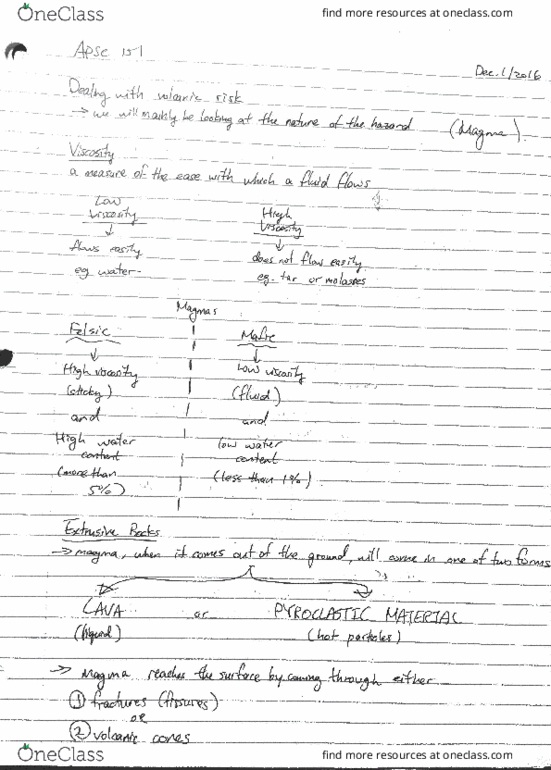 OneClass
find more resources at oneclass.com
Apsc 151
Dec. 1/2016
Dealing with volcanic risk
→ we will mainly be looking at the nature of the hazard (Magma).
Viscosity
a measure of the ease with which a fluid flows
Low Viscosity
↓
flows easily
eg water
High Viscosity
↓
does not flow easily
eg. tar or molasses
Magmas
Felsic
↓
High viscosity
(sticky)
and
High water
content
(more than
5%)
Mafic
↓
Low viscosity
(fluid)
and
low water
content
(less than 1%)
Extrusive Rocks
→ magma, when it comes out of the ground, will come in one of two forms
LAVA or PYROCLASTIC MATERIAL
(liquid) (hot particles)
→ Magma reaches the surface by coming through either
① fractures (fissures)
or
② volcanic cones
OneClass
find more resources at oneclass.com